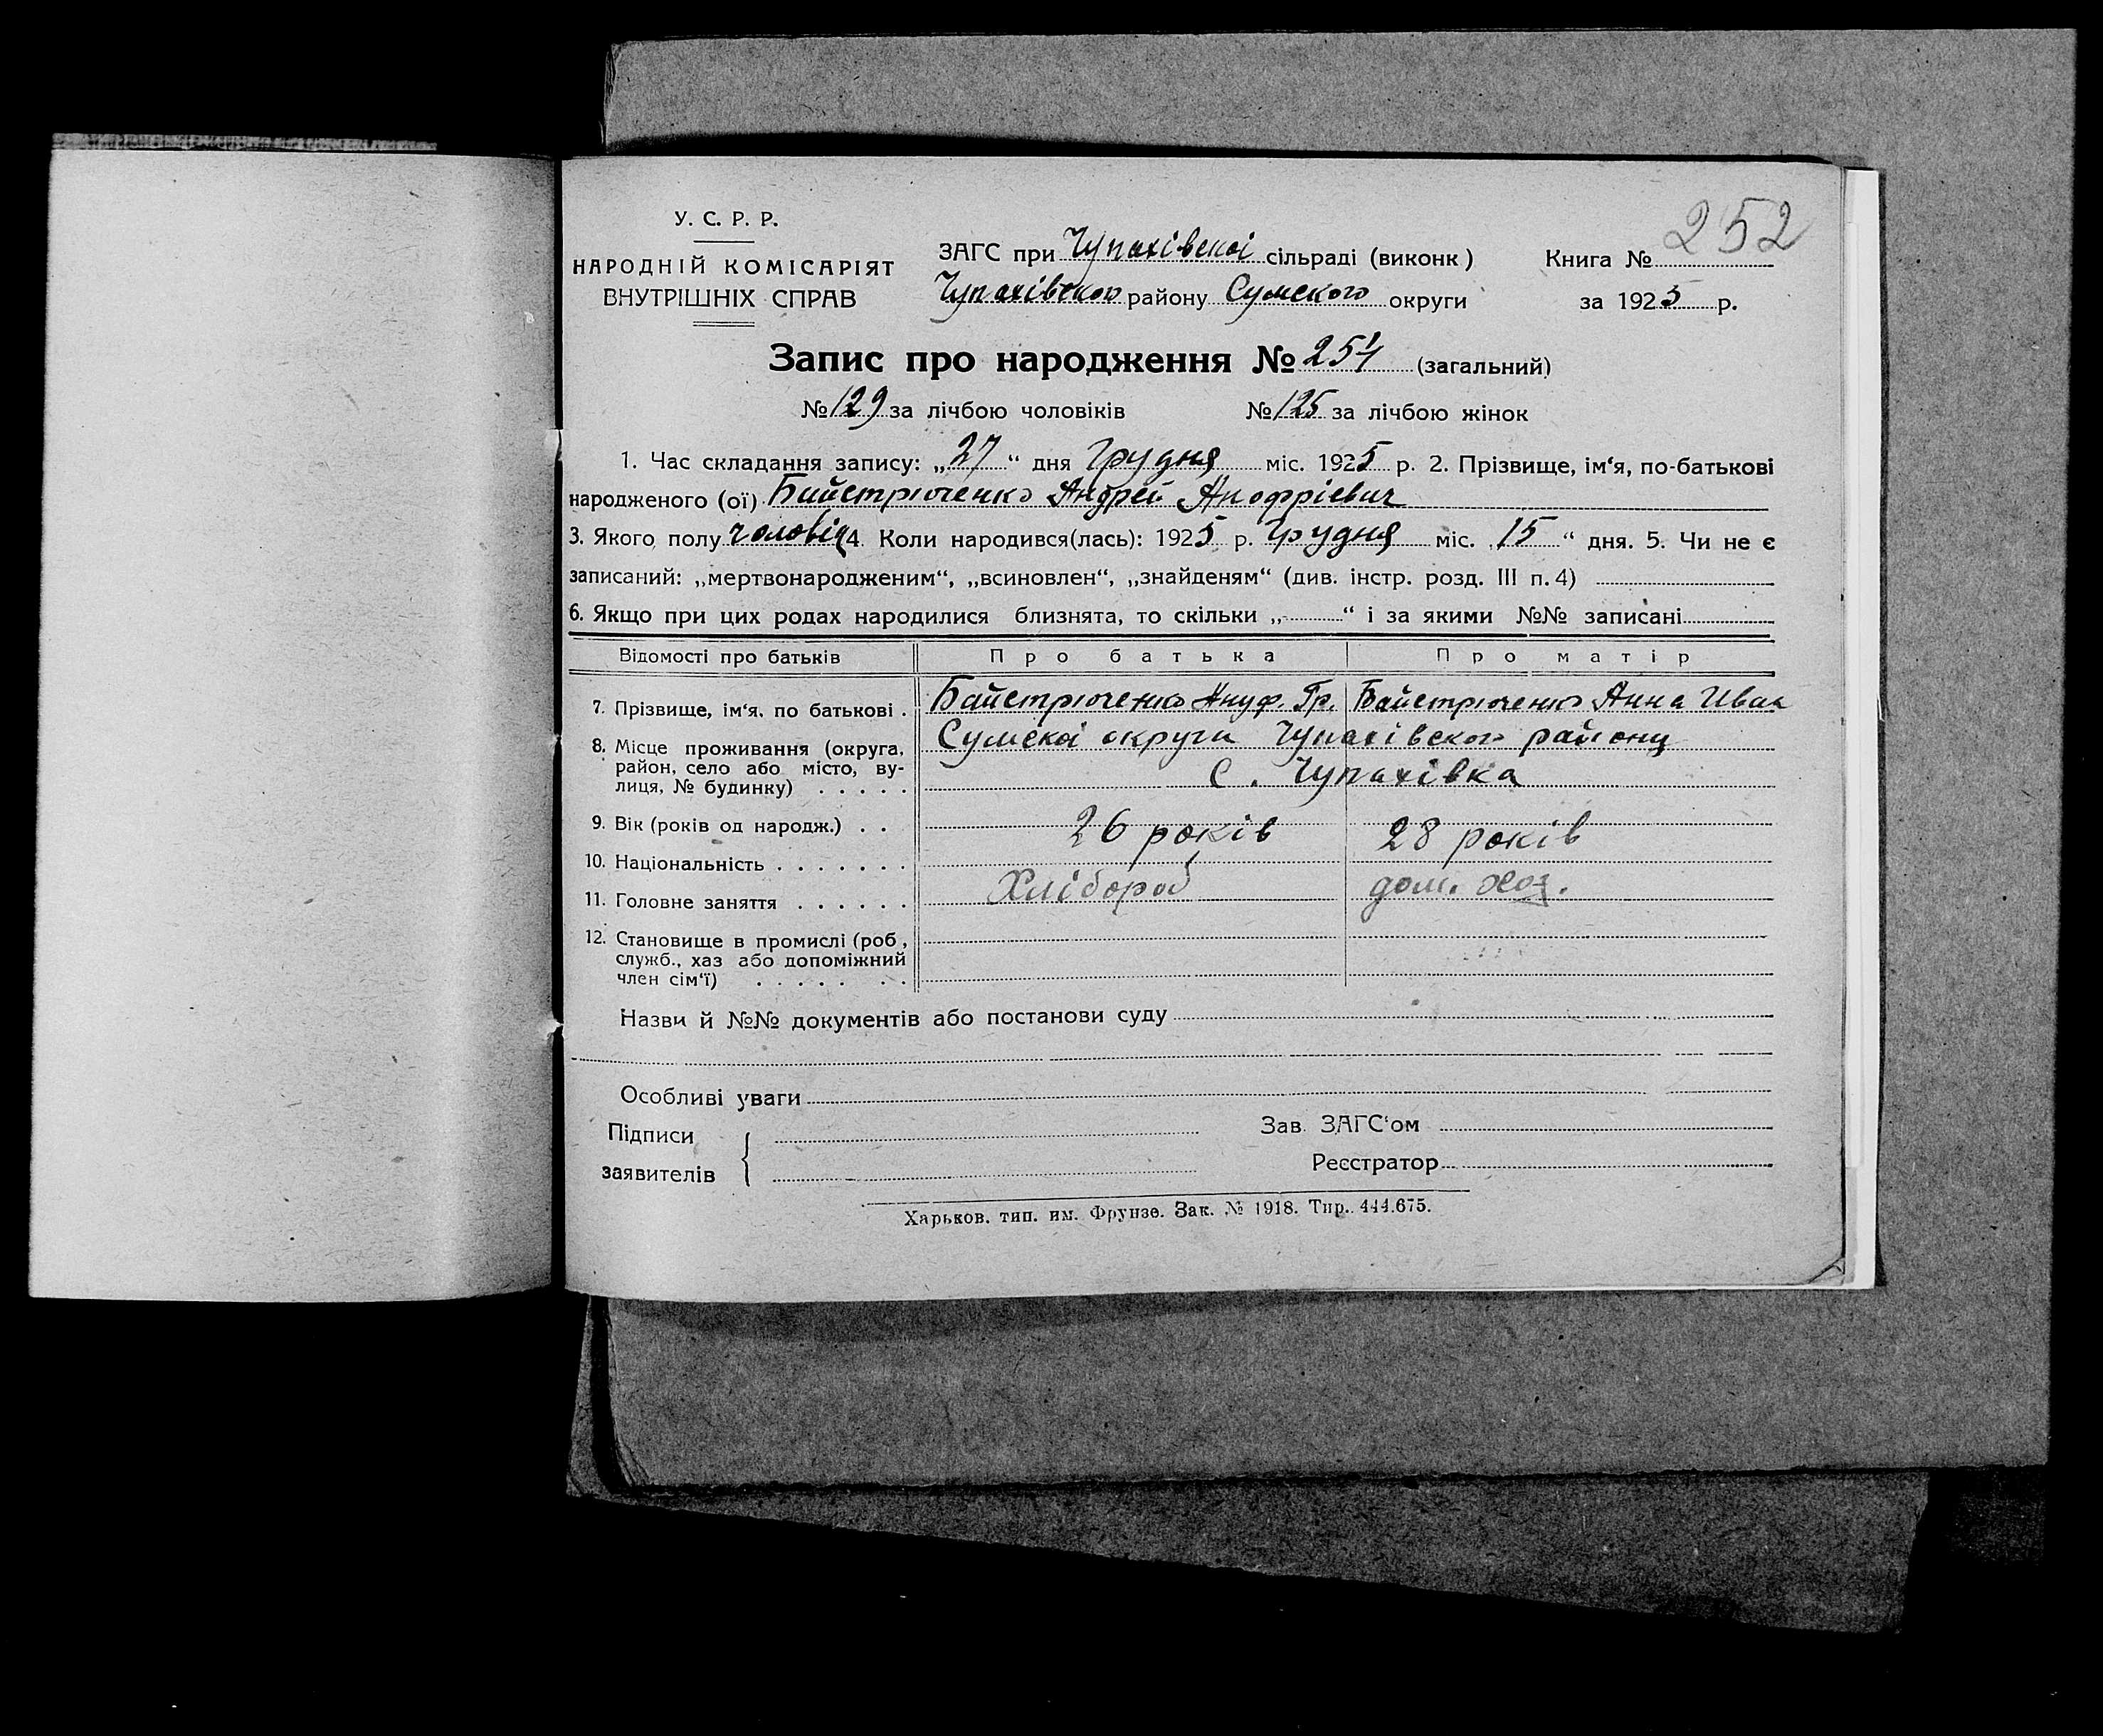 252
У. С. Р. Р.
НАРОДНІЙ КОМІСАРІЯТ
ВНУТРІШНІХ СПРАВ
ЗАГС при Чупахівскоі сільраді (виконк)
Чупахівского району Сумского округи
Книга №
за 1925 р.
Запис про народження № 254 (загальний)
№ 129 за лічбою чоловіків № 125 за лічбою жінок
1. Час складання запису: „27“ дня Грудня міс. 1925 р. 2. Прізвище, ім‘я, по-батькові
народженого (ої) Байстрюченко Андрей Анофріевич
3. Якого полу чоловіч 4. Коли народився(лась): 1925 р. Грудня міс. „15“ дня. 5. Чи не є
записаний: „мертвонародженим“, „всиновлен“, „знайденям“ (див. інстр. розд. III п. 4)
6. Якщо при цих родах народилися близнята, то скільки „ “ і за якими №№ записані
Відомості про батьків Про батька Про матір
7. Прізвище, ім‘я, по батькові . Байстрюченко Ануф. Гр. Байстрюченко Анна Иван
8. Місце проживання (округа, Сумскоі округи Чупахівского району
район, село або місто, ву- с. Чупахівка
лиця, № будинку) . . . . .
9. Вік (років од народж.) . . 26 років 28 років
10. Національність . . . . . . .
11. Головне заняття . . . . . . Хлібороб дом. хоз.
12. Становище в промислі (роб.,
служб., хаз або допоміжний
член сім‘ї) . . . . . . .
Назви й №№ документів або постанови суду
Особливі уваги
Підписи
заявителів
Зав. ЗАГС‘ом
Реєстратор
Харьков. тип. им. Фрунзе. Зак. № 1918. Тир. 444.675.